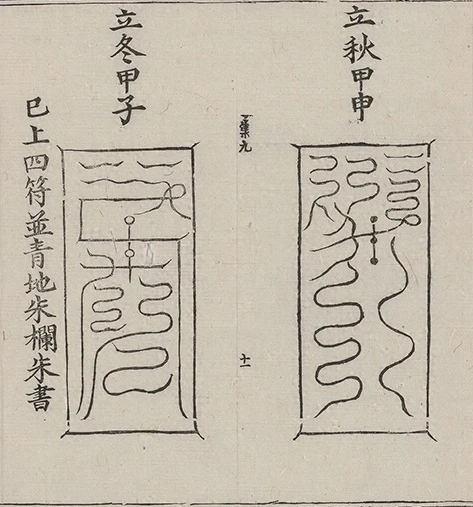 立秋甲申
十一
立冬甲子
已上四符並青地朱欄朱書